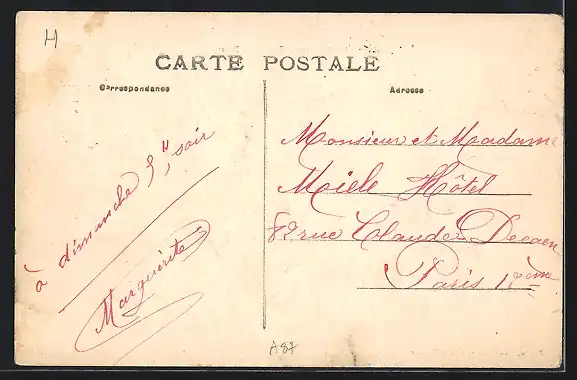 H
CARTE POSTALE
Correspondance
Adresse
à dimanche soir
Marguerite
Monsieur et Madame
Miele Hôtel
82 rue Claude Decaen
Paris 12ème
A87